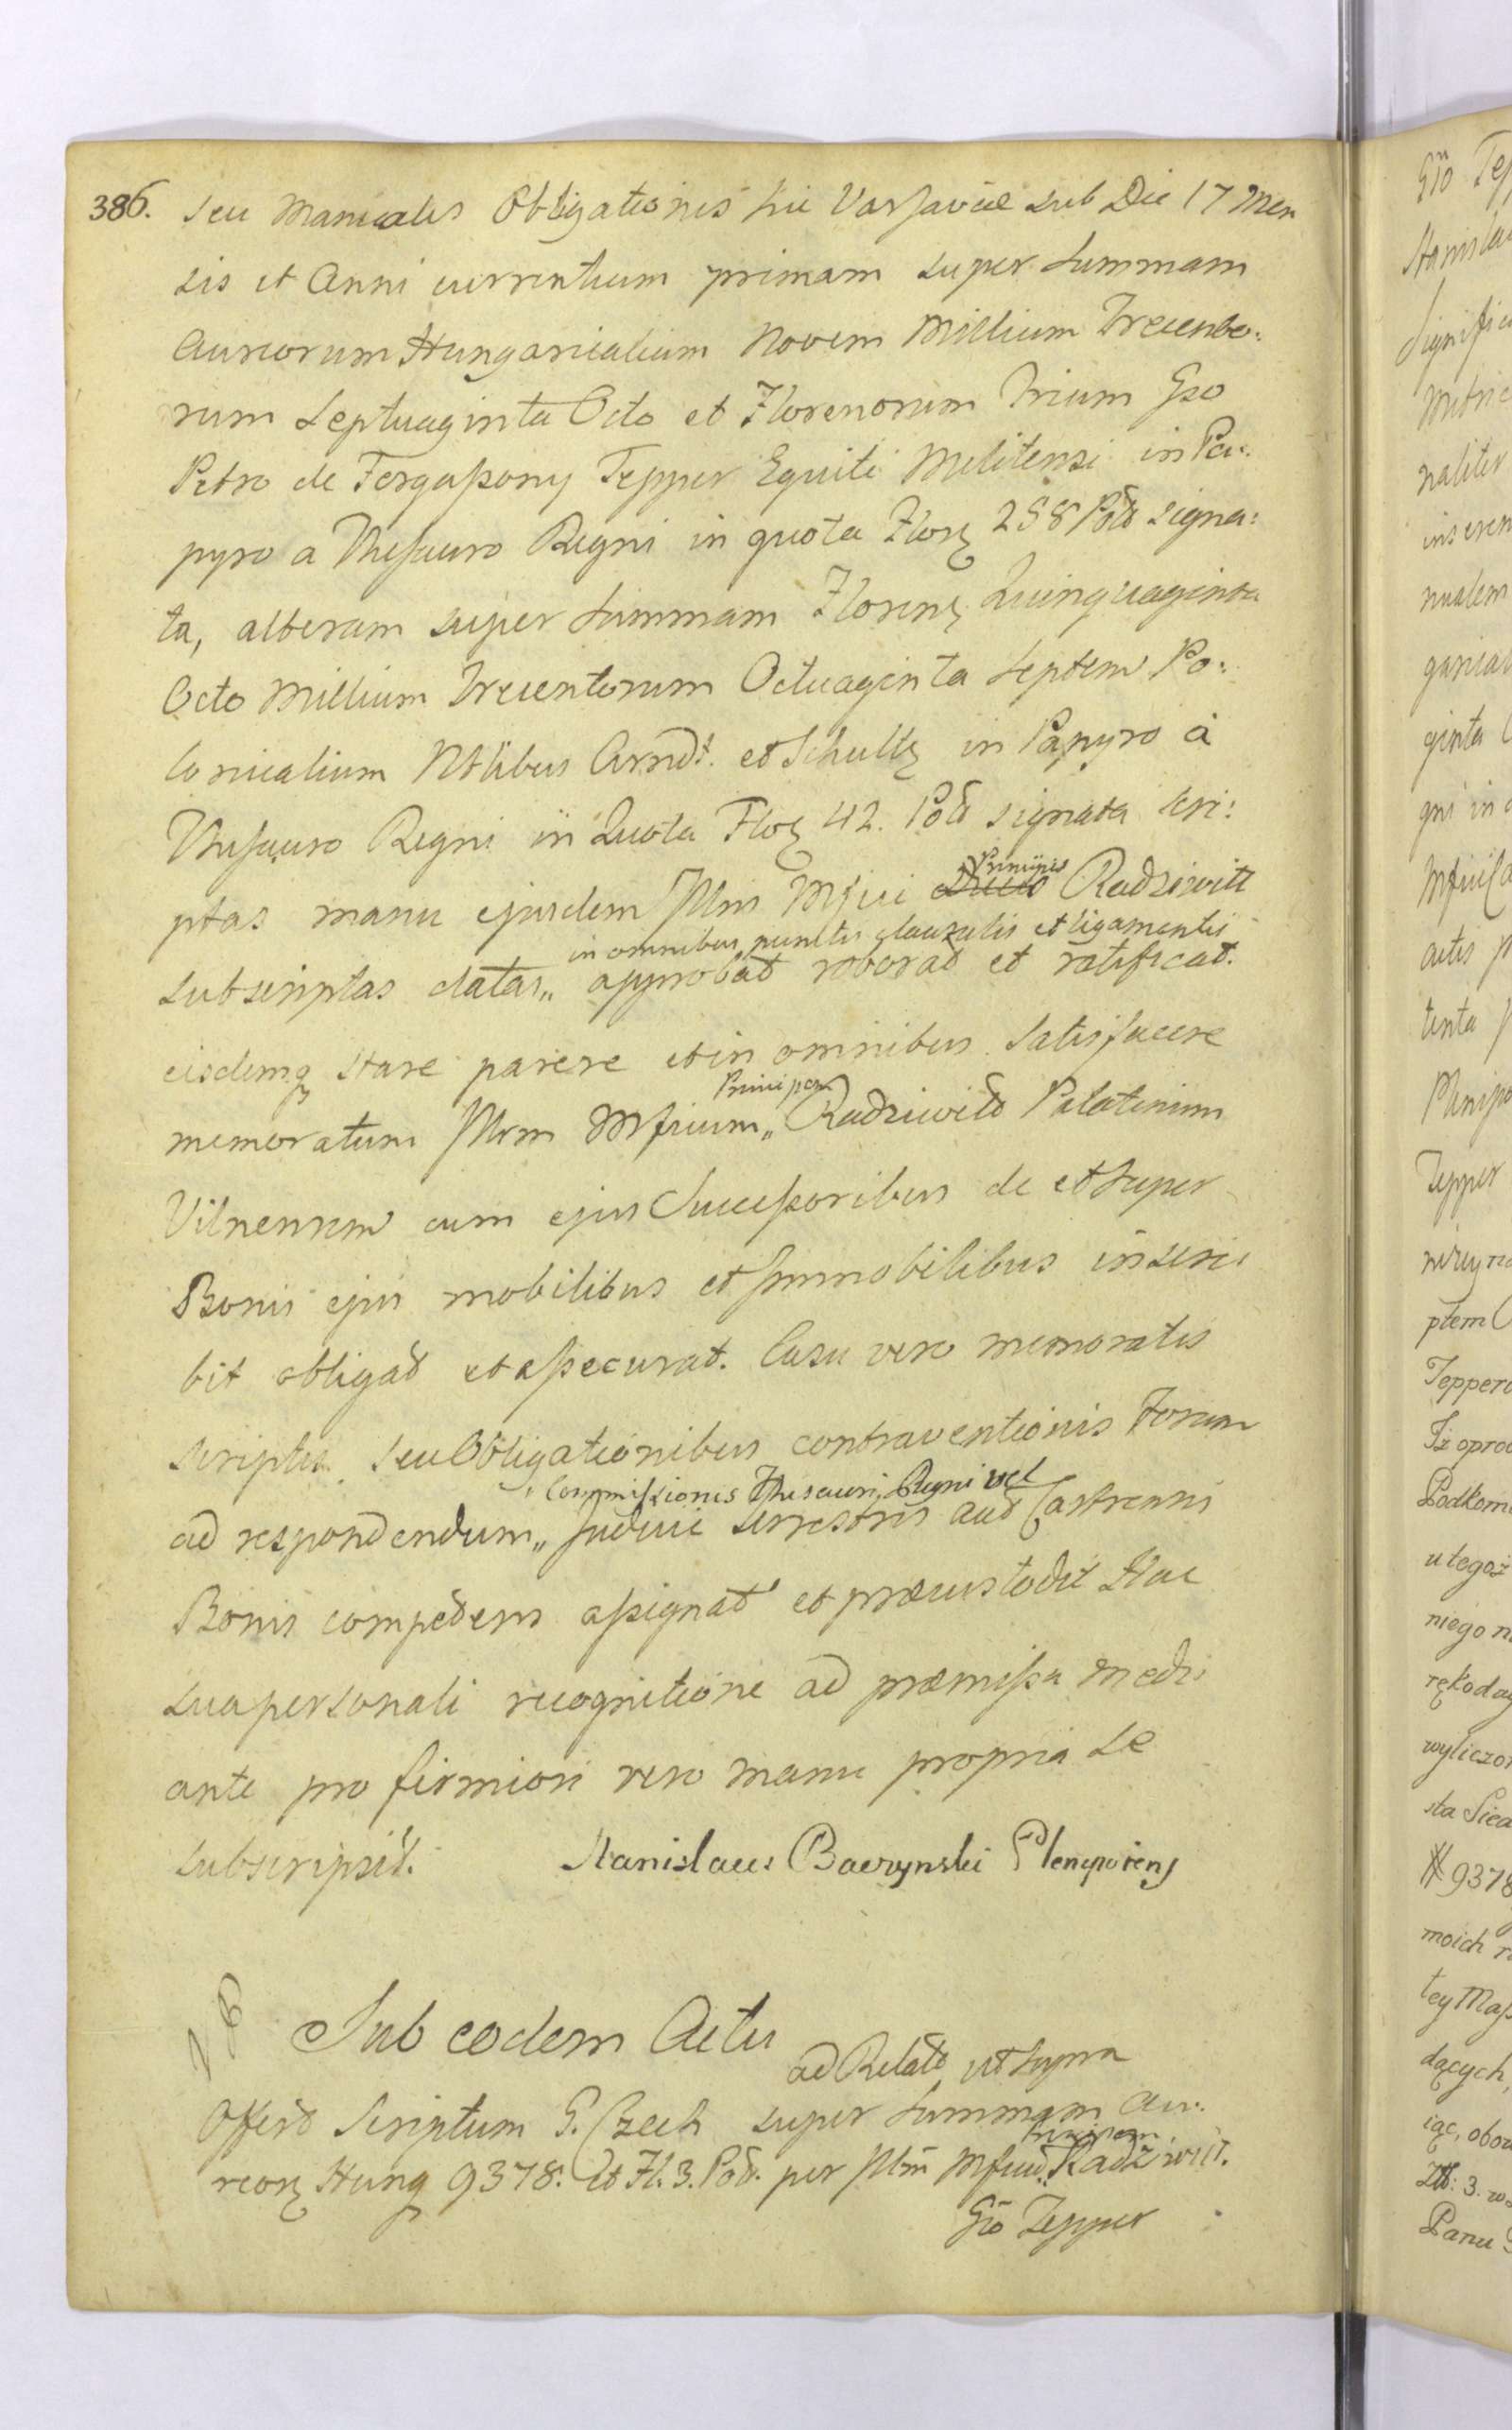 386. seu Manualis Obligationis hic Varsaviæ sub Die 17 Men
sis et Anni currentium primam super Summam
Aureorum Hungaricalium Novem Millium Trecento:
rum Septuaginta Octo et Florenorum Trium Gso
Petro de Fergaßony Tepper Equiti Melitensi in Pa:
pyro a Thesauro Regni in quota Flor 258 Pol signa:
ta, alteram super Summam Floren Quinquaginta
Octo Millium Trecentorum Octuaginta Septem Po:
lonicalium Ntlibus Arndt. et Schultz in Papyro à
Thesauro Regni in Quota Flo 42. Pol signata scri:
Principis
ptas manu ejusdem Illmi Mfici Ducis Radziwill
in omnibus punctis clausulis et ligamentis
subscriptas datas,, approbat roborat et ratificat.
eisdemq stare parere et in omnibus Satisfacere
Principem
memoratum Illrm Mficum,, Radziwill Palatinum
Vilnensem cum ejus Succeßoribus de et super
Bonis ejus mobilibus et Immobilibus inscri
bit obligat et aßecurat. Casu vero memoratis
Scriptis seu Obligationibus contraventionis Forum
Commißionis Thesauri Regni vel
ad respondendum,, Judicii terrestris aut Castrensis
Bonis competens aßignat et præcustodit Hac
sua personali recognitione ad præmißa medi
ante pro firmiori vero manu propria se
subscripsit. Stanislaus Baczynski Plenipotens
Sub eodem Actu
ad Relato ut supra
Offert Scriptum G. Czech super Summam Au:
Principem
reor Hung 9378. et Fl. 3. Pol. per Illm Mficum,, Radziwill.
Gso Tepper
Gso Tep
Stanislau
Signific
naliter
nualem
ginta
gni in
actis
tenta
Tepper
ptem
Teppero
Iż opro
Podkom
u tegoż
niego n
rękoday
wyliczo
sta Sied
# 9378
moich r
tey Maß
dących,
iąc, obow
Zł: 3. w
Panu